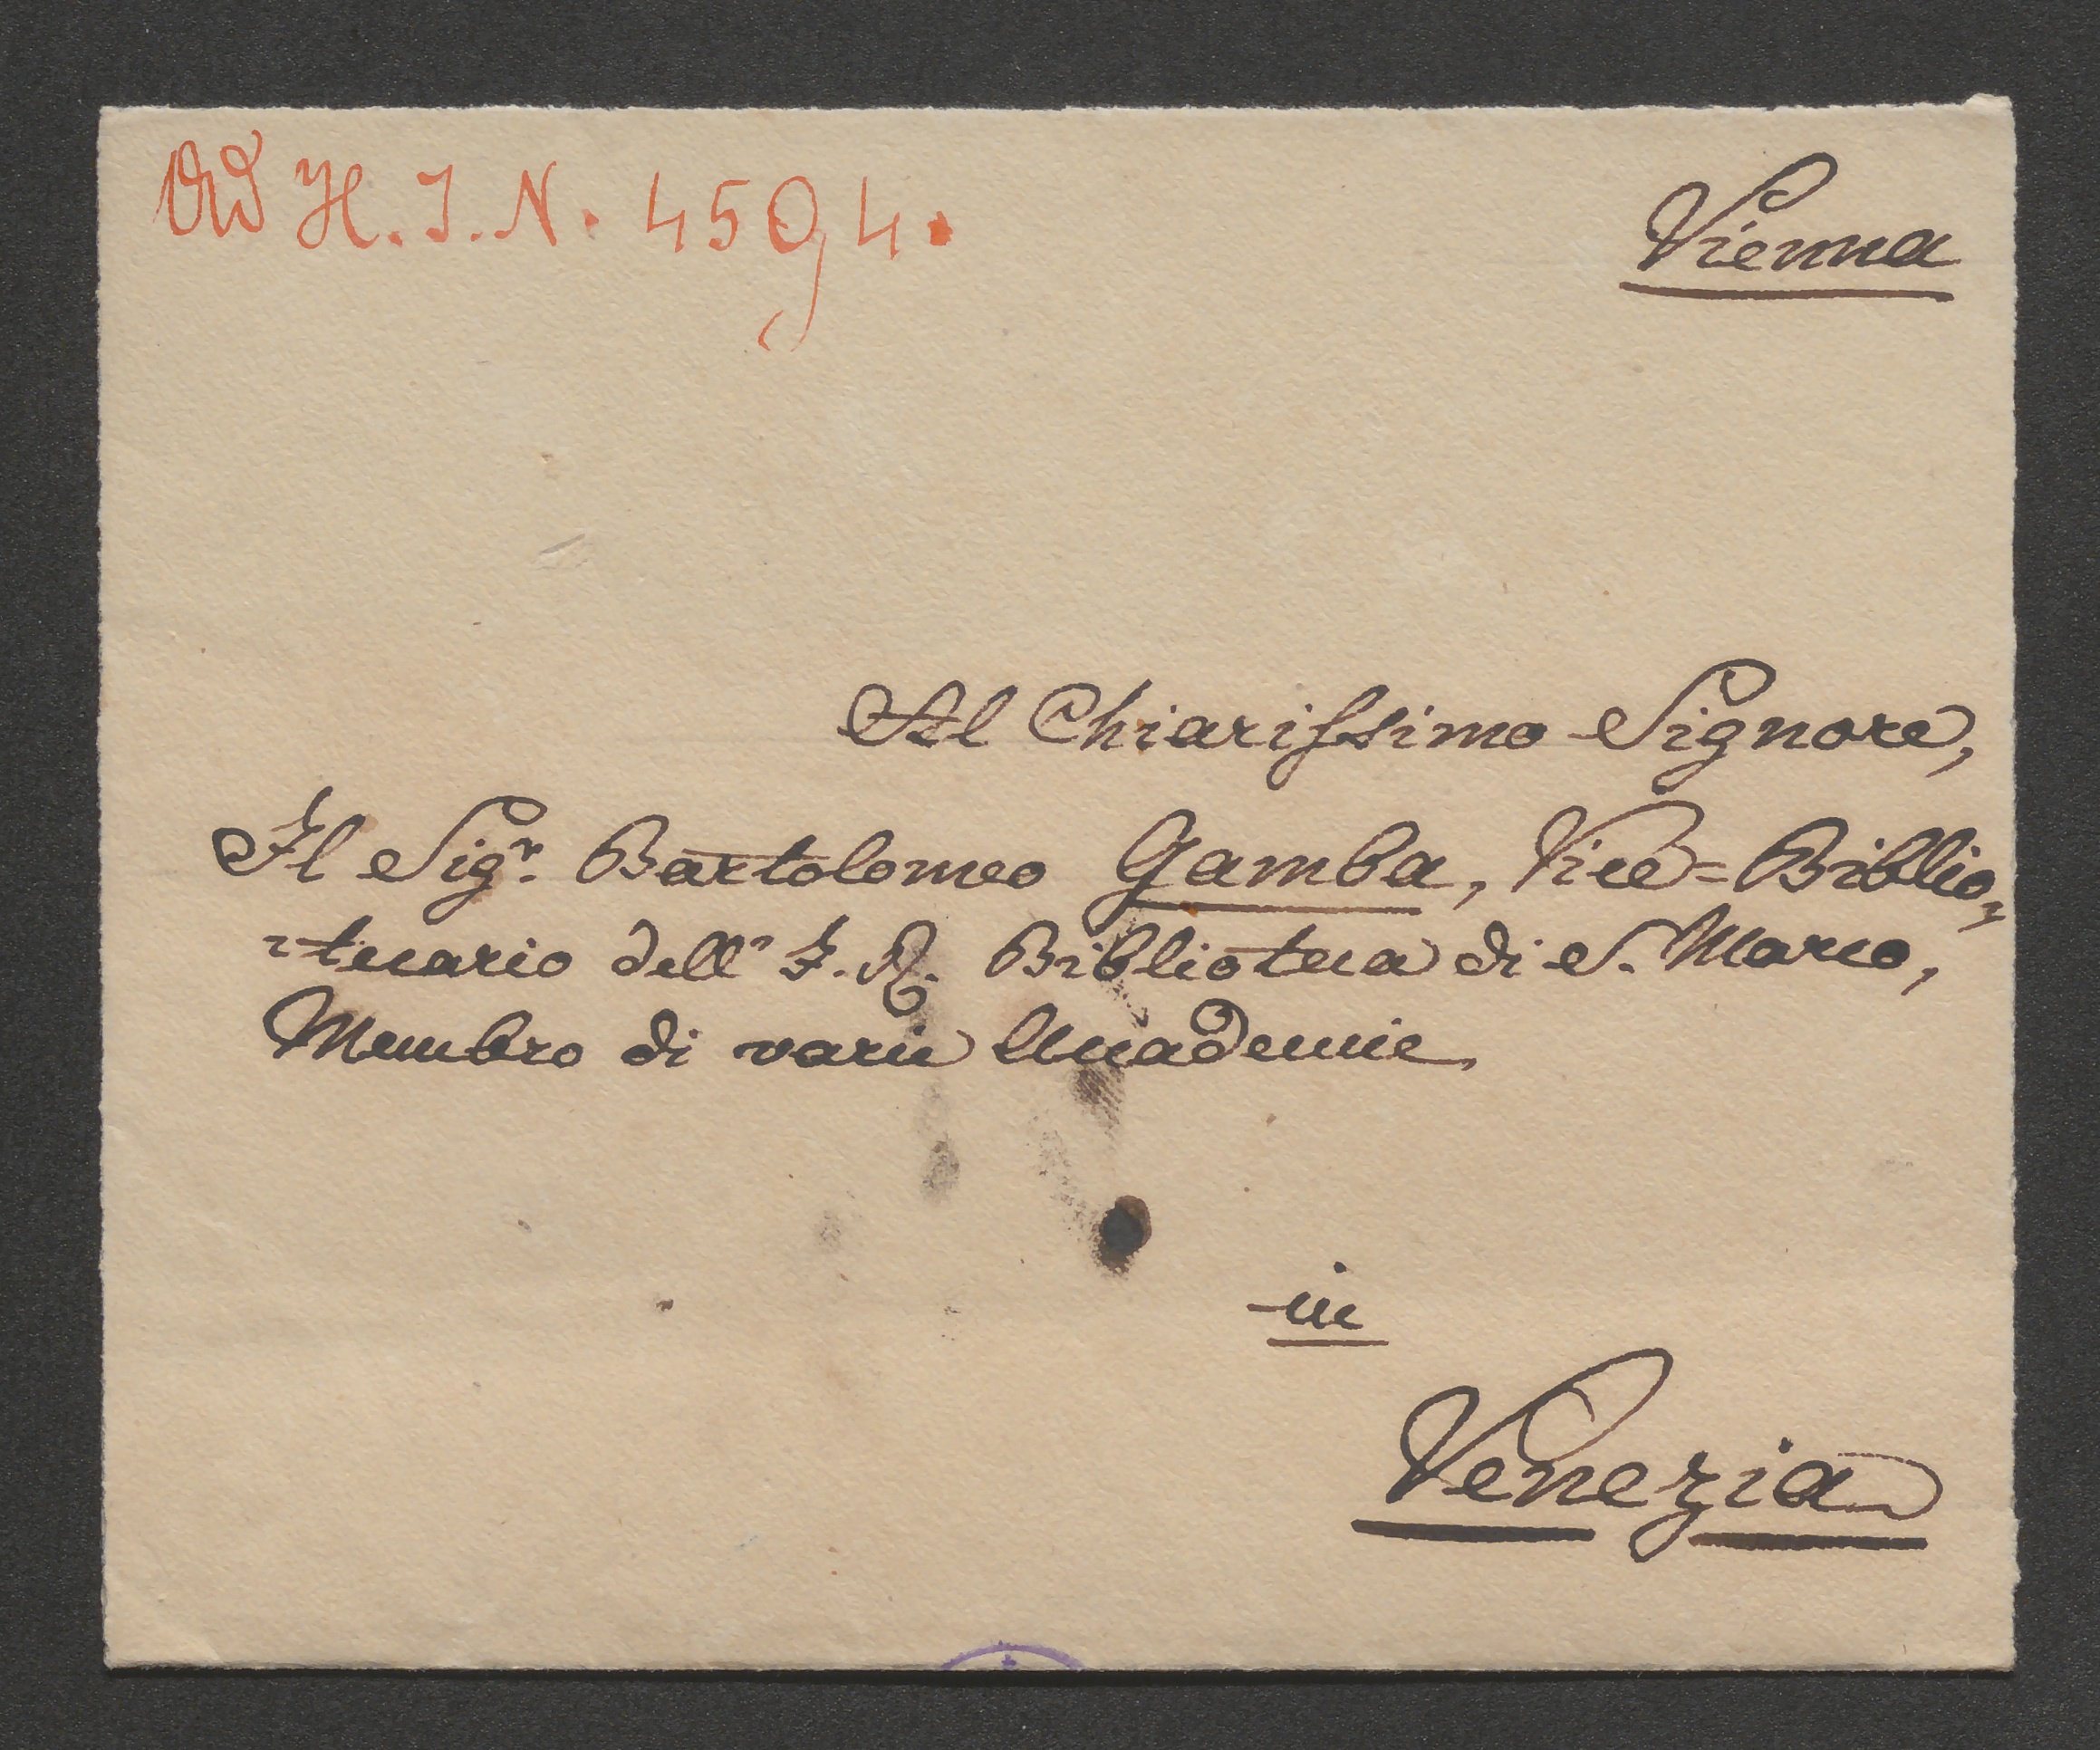 Ad H. I. N. 4594.
Vienna
Al Chiarissimo Signore,
Il Sigr. Bartolomeo Gamba, Vice=Biblio=
=tecario dell' I. R. Biblioteca di S. Marco,
Membro di varie Accademie.
in
Venezia